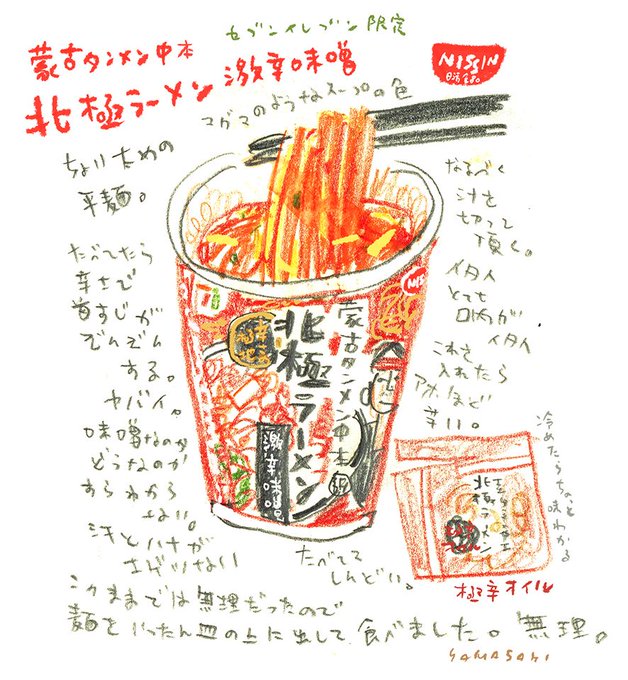 セブンイレブン限定
蒙古タンメン中本
北極ラーメン 激辛味噌
NISSIN
マグマのようなスープの色
ちょい太めの
平麺。
なるべく
汁を
切って
頂く。
たべてたら
辛さで
首すじが
でんでん
する。
ヤバイ。
味噌なのか
どうなのか
すらわから
ない。
汗とハナが
とまらない
イタイ
とても
口内が
イタイ
これを
入れたら
アホほど
辛い。
蒙古タンメン中本
北極ラーメン
激辛味噌
NIS
冷めたらちょっと
味わかる
北極ラーメン
極辛オイル
たべてて
しんどい。
このままでは無理だったので
麺をいったん皿の上に出して食べました。無理。
YAMASAKI